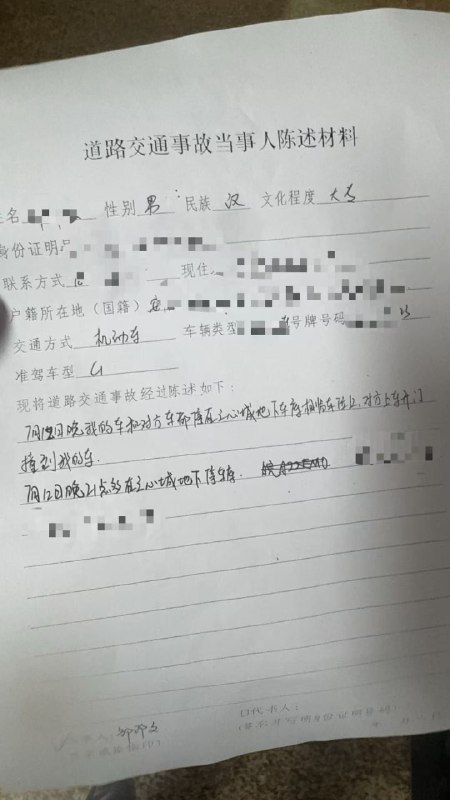 道路交通事故当事人陈述材料
姓名 性别 男 民族 汉 文化程度 大专
身份证明
联系方式 现住
户籍所在地（国籍）
交通方式 机动车 车辆类型 号牌号码
准驾车型 C1
现将道路交通事故经过陈述如下：
7月12日晚我的车和对方车都停在 心城地下车库相临车位上,对方上车开门
撞到我的车.
7月12日晚21点多在 心城地下停车库.
代书人：